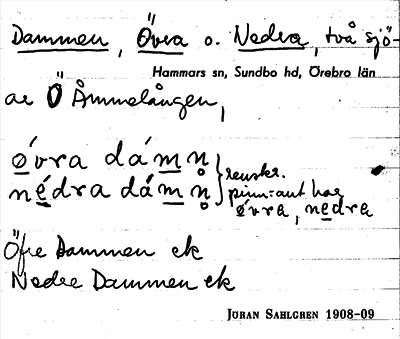 Dammen, Övra o. Nedra, två sjö-
Hammars sn, Sundbo hd, Örebro län
ar Ö Åmmelången,
ǿvra dámn̥
nédra dámn̥
renskr.
prim-ant har
ǿvra, nedra
Öfre Dammen ek
Nedre Dammen ek
Jöran Sahlgren 1908-09